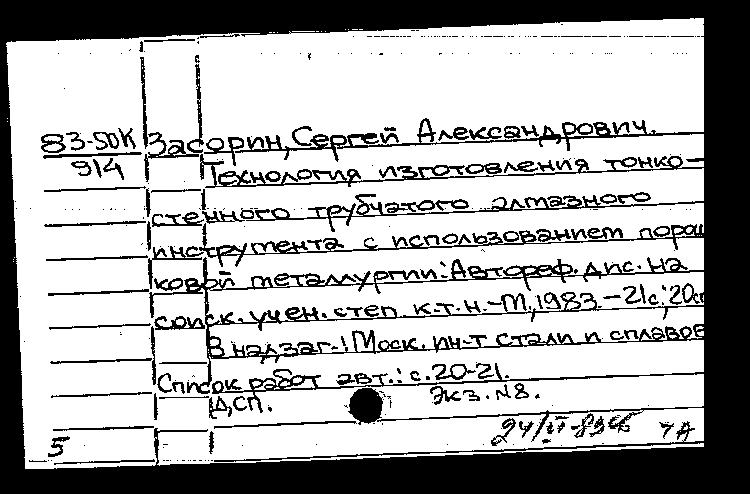 83-50К Засорин, Сергей Александрович.
914 Технология изготовления тонко-
стенного трубчатого алмазного
инструмента с использованием порош
ковой металлургии: Автореф. дис. на
соиск. учен. степ. к.т.н. - М, 1983. - 21с; 20см
В надзаг.: Моск. ин-т стали и сплавов
Список работ авт.: с. 20-21.
ДСП. Экз. N8.
5 24/ -83 7А